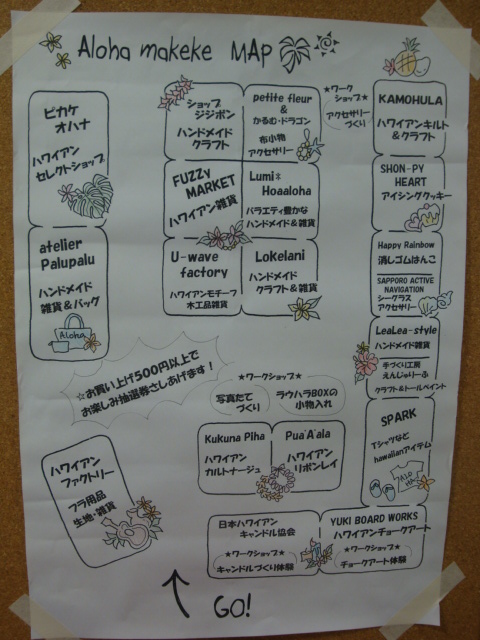 Aloha makeke MAP
ピカケ
オハナ
ハワイアン
セレクトショップ
atelier
Palupalu
ハンドメイド
雑貨&バッグ
Aloha
ショップ
ジジポン
ハンドメイド
クラフト
petite fleur
&
かるむ・ドラゴン
布小物
アクセサリー
★ワーク
ショップ★
アクセサリー
づくり
FUZZy
MARKET
ハワイアン雑貨
Lumi*
Hoaaloha
バラエティ豊かな
ハンドメイド&雑貨
U-wave
factory
ハワイアンモチーフ
木工品雑貨
Lokelani
ハンドメイド
クラフト&雑貨
KAMOHULA
ハワイアンキルト
&クラフト
SHON-PY
HEART
アイシングクッキー
Happy Rainbow
消しゴムはんこ
SAPPORO ACTIVE
NAVIGATION
シーグラス
アクセサリー
LeaLea-style
ハンドメイド雑貨
手づくり工房
えんじゅりーふ
クラフト&トールペイント
SPARK
Tシャツなど
hawaiianアイテム
ALOHA
☆お買い上げ500円以上で
お楽しみ抽選券さしあげます!
★ワークショップ★
写真たて
づくり
ラウハラBOXの
小物入れ
Kukuna Piha
ハワイアン
カルトナージュ
Pua'A'ala
ハワイアン
リボンレイ
ハワイアン
ファクトリー
フラ用品
生地・雑貨
日本ハワイアン
キャンドル協会
★ワークショップ★
キャンドルづくり体験
YUKI BOARD WORKS
ハワイアンチョークアート
★ワークショップ★
チョークアート体験
GO!